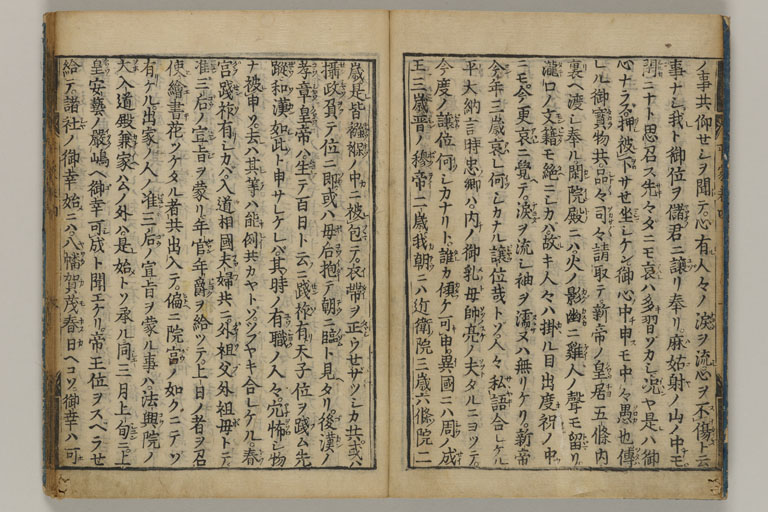 ノ事共仰セシヲ聞テ心有人々ノ涙ヲ流心ヲ不傷ト云
事ナシ我ト御位ヲ儲君ニ讓リ奉リ麻姑射ノ山ノ中モ
閑ニナト思召ス先々ダニモ哀ハ多習ゾカシ况ヤ是ハ御
心ナラズ押被下サセ坐シケン御心中申モ中々愚也傳
レル御寳物共品々司々請取テ新帝ノ皇居五條内
裏ヘ渡シ奉ル閑院殿ニハ火ノ影幽ニ雞人ノ聲モ留リ
瀧口ノ文籍モ絶ニシカバ故キ人々ハ掛ル目出度祝ノ中
ニモ今更哀ニ覺テ涙ヲ流シ袖ヲ濡ヌハ無リケリ新帝
今年三歳哀レ何シカナル讓位哉トゾ人々私語合レケル
平大納言時忠卿ハ内ノ御乳母帥亮ノ夫タルニヨツテ
今度ノ讓位何シカナリト誰カ傾ケ可申異國ニハ周ノ成
王三歳晋ノ穆帝二歳我朝ニハ近衛院三歳六條院二
歳是皆襁褓ノ中ニ被包テ衣帶ヲ正ウセザツシカ共或ハ
攝政負テ位ニ即或ハ母后抱テ朝ニ臨ト見タリ後漢ノ
孝章皇帝ハ生テ百日ト云ニ踐祚有天子位ヲ踐ム先
蹤和漢如此ト申サレケレバ其時ノ有職ノ人々穴怖シ物
ナ被申ソ去バ其等ハ能例共カヤトゾツブヤキ合レケル春
宮踐祚有シカバ入道相國夫婦共ニ外祖父外祖母トテ
准三后ノ宣旨ヲ蒙リ年官年爵ヲ給ツテ上日ノ者ヲ召
使繪書花ツケタル者共出入テ偏ニ院宮ノ如クニテゾ
有ケル出家ノ人ノ准三后ノ宣旨ヲ蒙ル事ハ法興院ノ
大入道殿兼家公ノ外ハ是始トゾ承ル同三月上旬ニ上
皇安藝ノ嚴嶋ヘ御幸可成ト聞エケリ帝王位ヲスベラセ
給テ諸社ノ御幸始ニハ八幡賀茂春日ヘコソ御幸ハ可